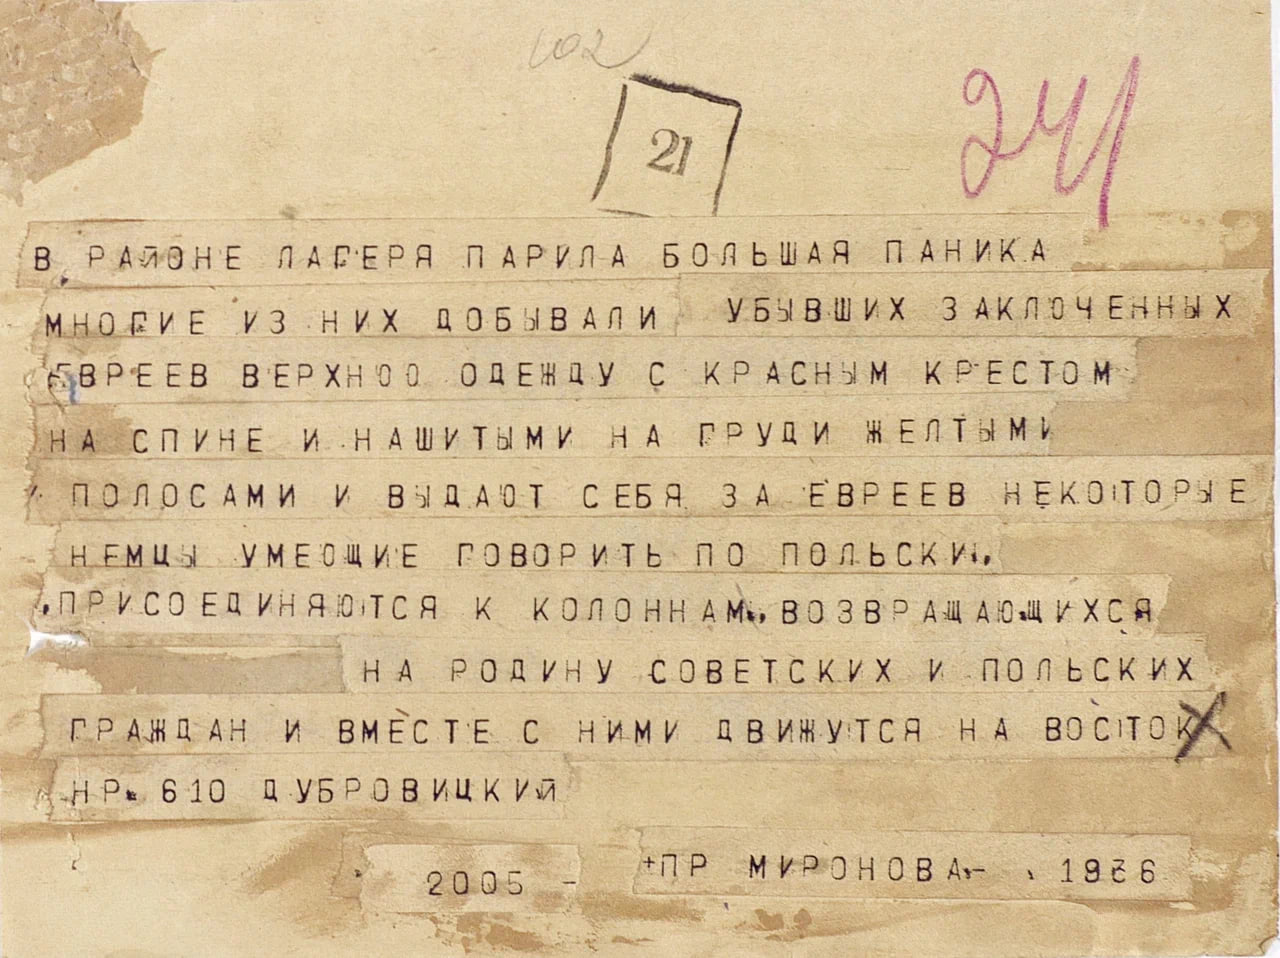 102
21
241
В РАЙОНЕ ЛАГЕРЯ ПАРИЛА БОЛЬШАЯ ПАНИКА
МНОГИЕ ИЗ НИХ ДОБЫВАЛИ УБЫВШИХ ЗАКЛОЧЕННЫХ
ЕВРЕЕВ ВЕРХНОО ОДЕЖДУ С КРАСНЫМ КРЕСТОМ
НА СПИНЕ И НАШИТЫМИ НА ГРУДИ ЖЕЛТЫМИ
ПОЛОСАМИ И ВЫДАЮТ СЕБЯ ЗА ЕВРЕЕВ НЕКОТОРЫЕ
НЕМЦЫ УМЕОЩИЕ ГОВОРИТЬ ПО ПОЛЬСКИ..
.ПРИСОЕДИНЯЮТСЯ К КОЛОННАМ.. ВОЗВРАЩАЮЩИХСЯ
НА РОДИНУ СОВЕТСКИХ И ПОЛЬСКИХ
ГРАЖДАН И ВМЕСТЕ С НИМИ ДВИЖУТСЯ НА ВОСТОК
НР. 610 ДУБРОВИЦКИЙ
2005 - +ПР МИРОНОВА.- . 1936